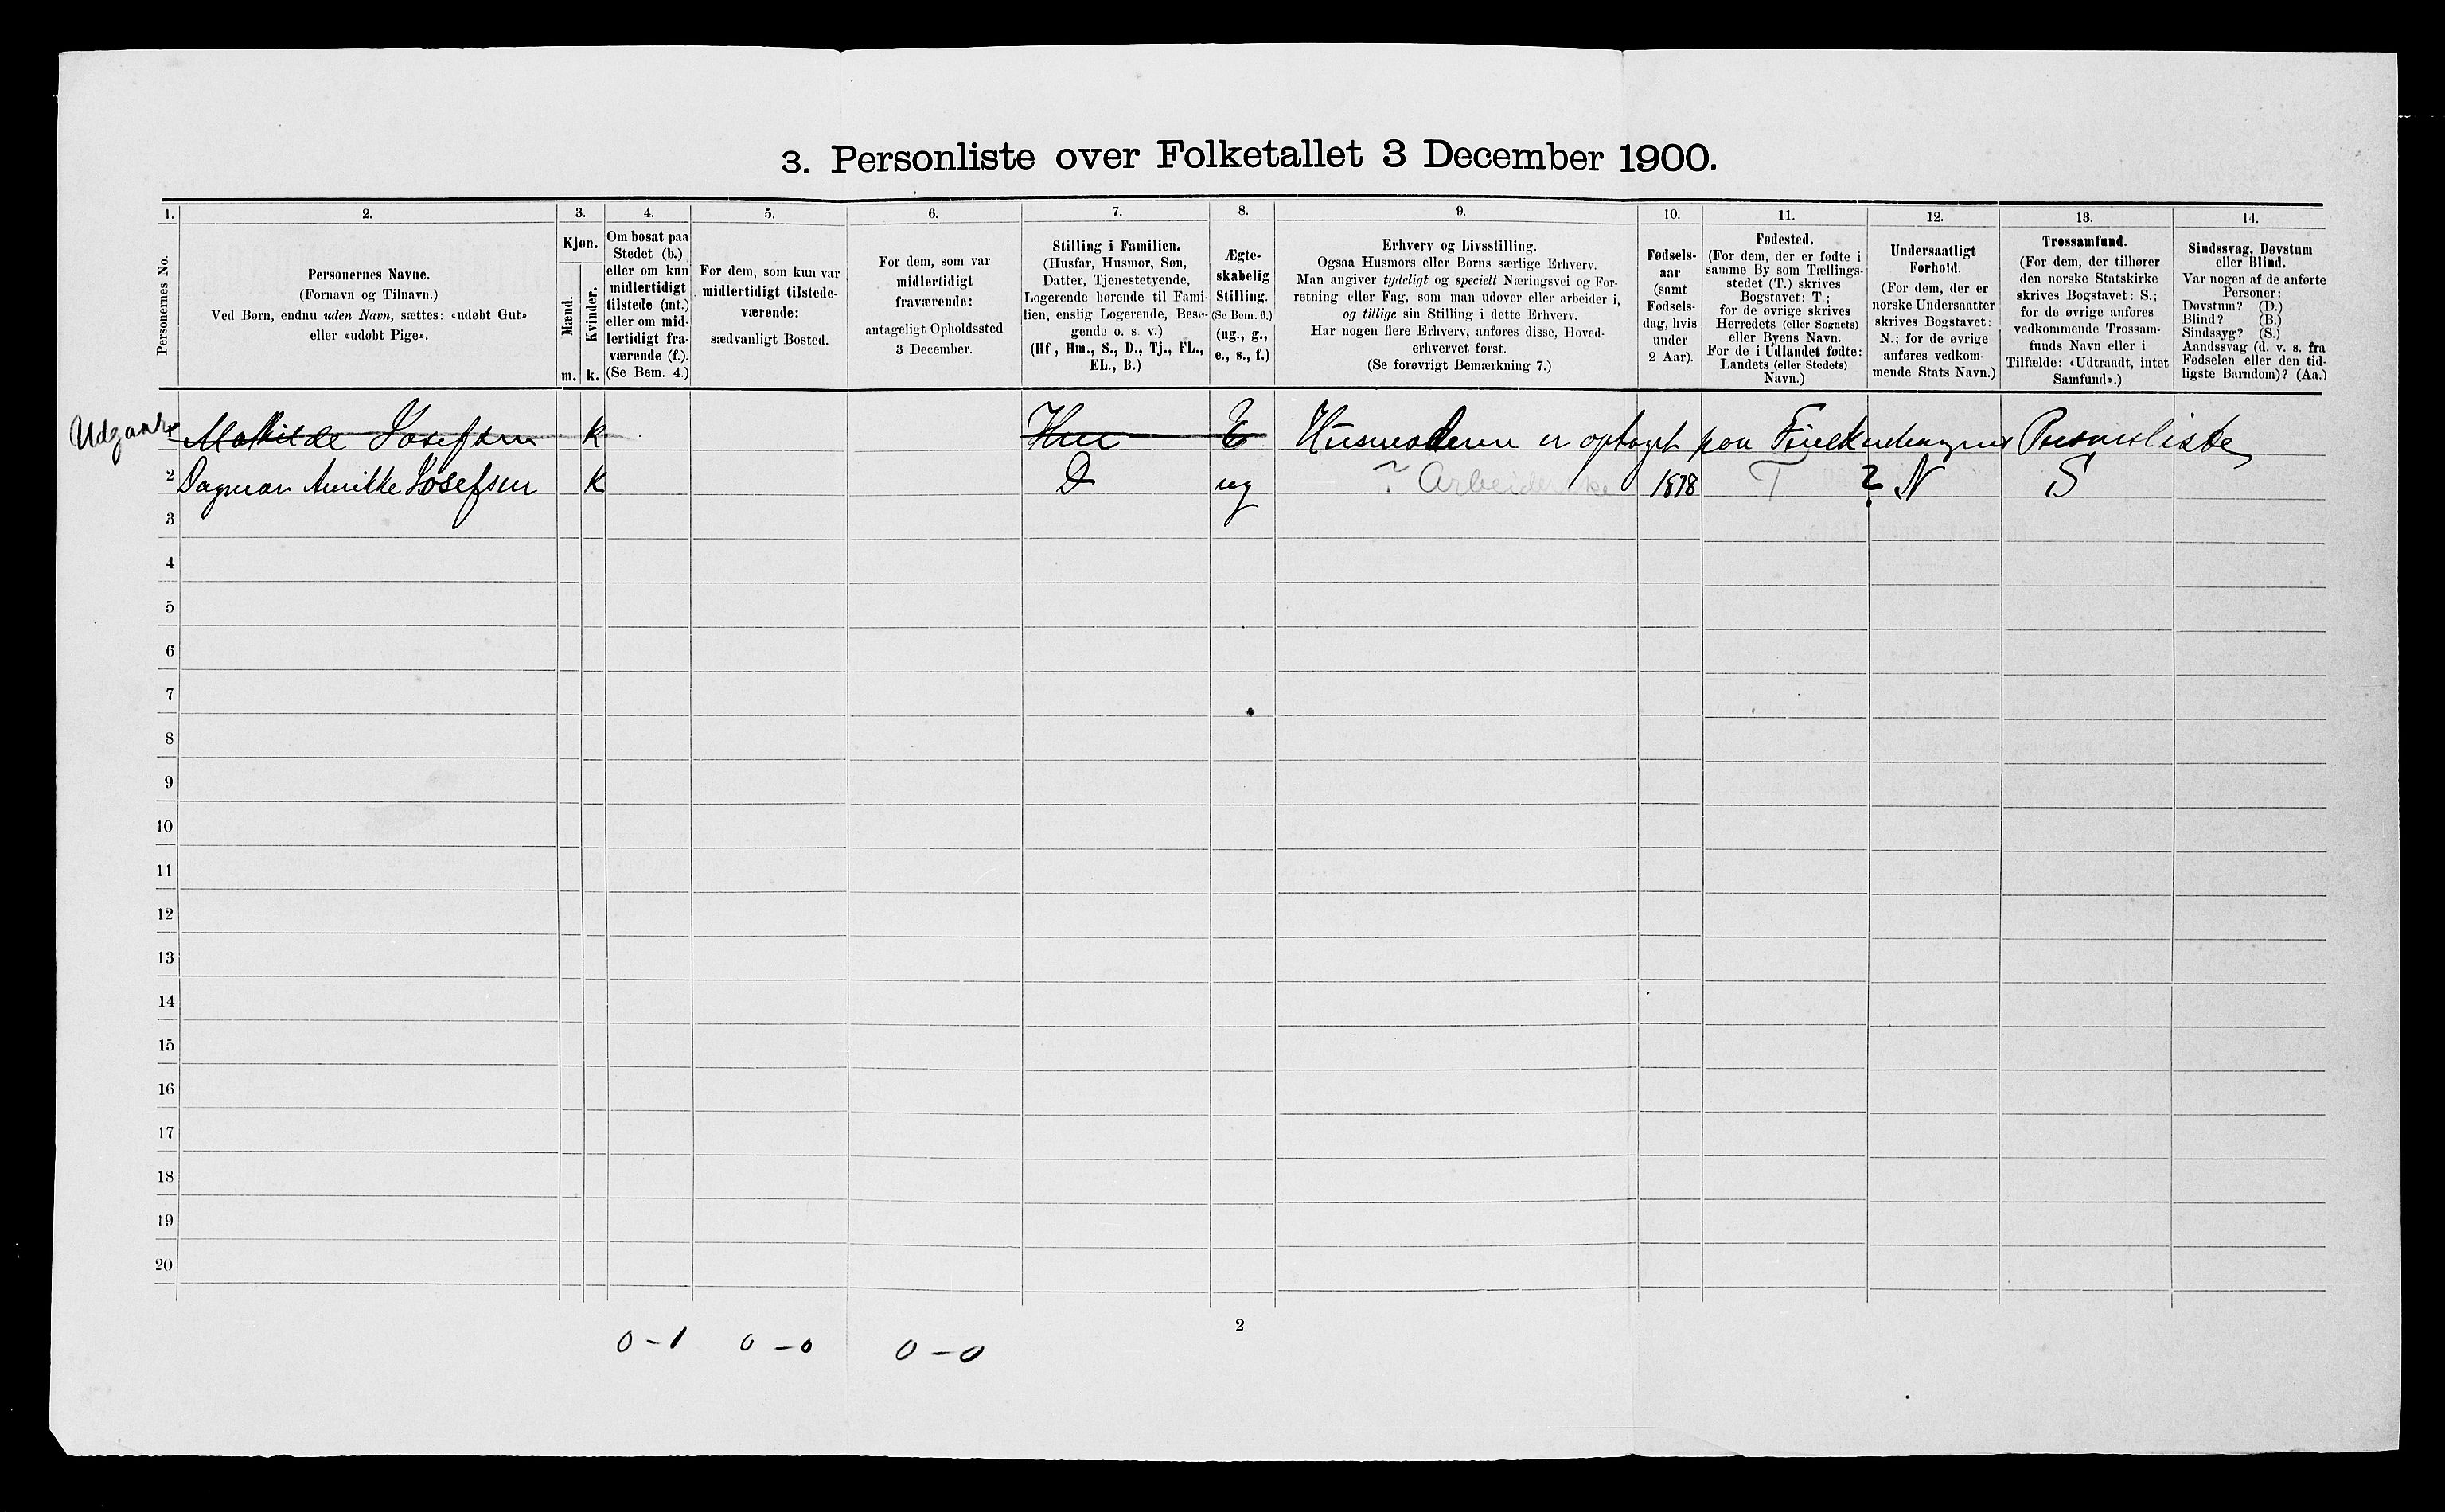 3. Personliste over Folketallet 3 December 1900.
1. 2. 3. 4. 5. 6. 7. 8. 9. 10. 11. 12. 13. 14.
Personernes No.
Personernes Navne.
(Fornavn og Tilnavn.)
Ved Børn, endnu uden Navn, sættes: «udøbt Gut»
eller «udøbt Pige».
Kjøn.
Mænd.
Kvinder.
m. k.
Om bosat paa
Stedet (b.)
eller om kun
midlertidigt
tilstede (mt.)
eller om mid-
lertidigt fra-
værende (f.).
(Se Bem. 4.)
For dem, som kun var
midlertidigt tilstede-
værende:
sædvanligt Bosted.
For dem, som var
midlertidigt
fraværende:
antageligt Opholdssted
3 December.
Stilling i Familien.
(Husfar, Husmor, Søn,
Datter, Tjenestetyende,
Logerende hørende til Fami-
lien, enslig Logerende, Besø-
gende o. s. v.)
(Hf., Hm., S., D., Tj., FL.,
EL., B.)
Ægte-
skabelig
Stilling.
(Se Bem. 6.)
(ug., g.,
e., s., f.)
Erhverv og Livsstilling.
Ogsaa Husmors eller Børns særlige Erhverv.
Man angiver tydeligt og specielt Næringsvei og For-
retning eller Fag, som man udøver eller arbeider i,
og tillige sin Stilling i dette Erhverv.
Har nogen flere Erhverv, anføres disse, Hoved-
erhvervet først.
(Se forøvrigt Bemærkning 7.)
Fødsels-
aar
(samt
Fødsels-
dag, hvis
under
2 Aar).
Fødested.
(For dem, der er fødte i
samme By som Tællings-
stedet (T.) skrives
Bogstavet: T.;
for de øvrige skrives
Herredets (eller Sognets)
eller Byens Navn.
For de i Udlandet fødte:
Landets (eller Stedets)
Navn.)
Undersaatligt
Forhold.
(For dem, der er
norske Undersaatter
skrives Bogstavet:
N.; for de øvrige
anføres vedkom-
mende Stats Navn.)
Trossamfund.
(For dem, der tilhører
den norske Statskirke
skrives Bogstavet: S.;
for de øvrige anføres
vedkommende Trossam-
funds Navn eller i
Tilfælde: «Udtraadt, intet
Samfund».)
Sindssvag, Døvstum
eller Blind.
Var nogen af de anførte
Personer:
Døvstum? (D.)
Blind? (B.)
Sindssyg? (S.)
Aandssvag (d. v. s. fra
Fødselen eller den tid-
ligste Barndom)? (Aa.)
Udgaar Mathilde Josefsen k E Husmoderen er optaget paa Personsliste
2 Dagmar Josefsen k D ug ? Arbeiderske 1878 T ? N S
3
4
5
6
7
8
9
10
11
12
13
14
15
16
17
18
19
20
0-1 0-0 0-0
2